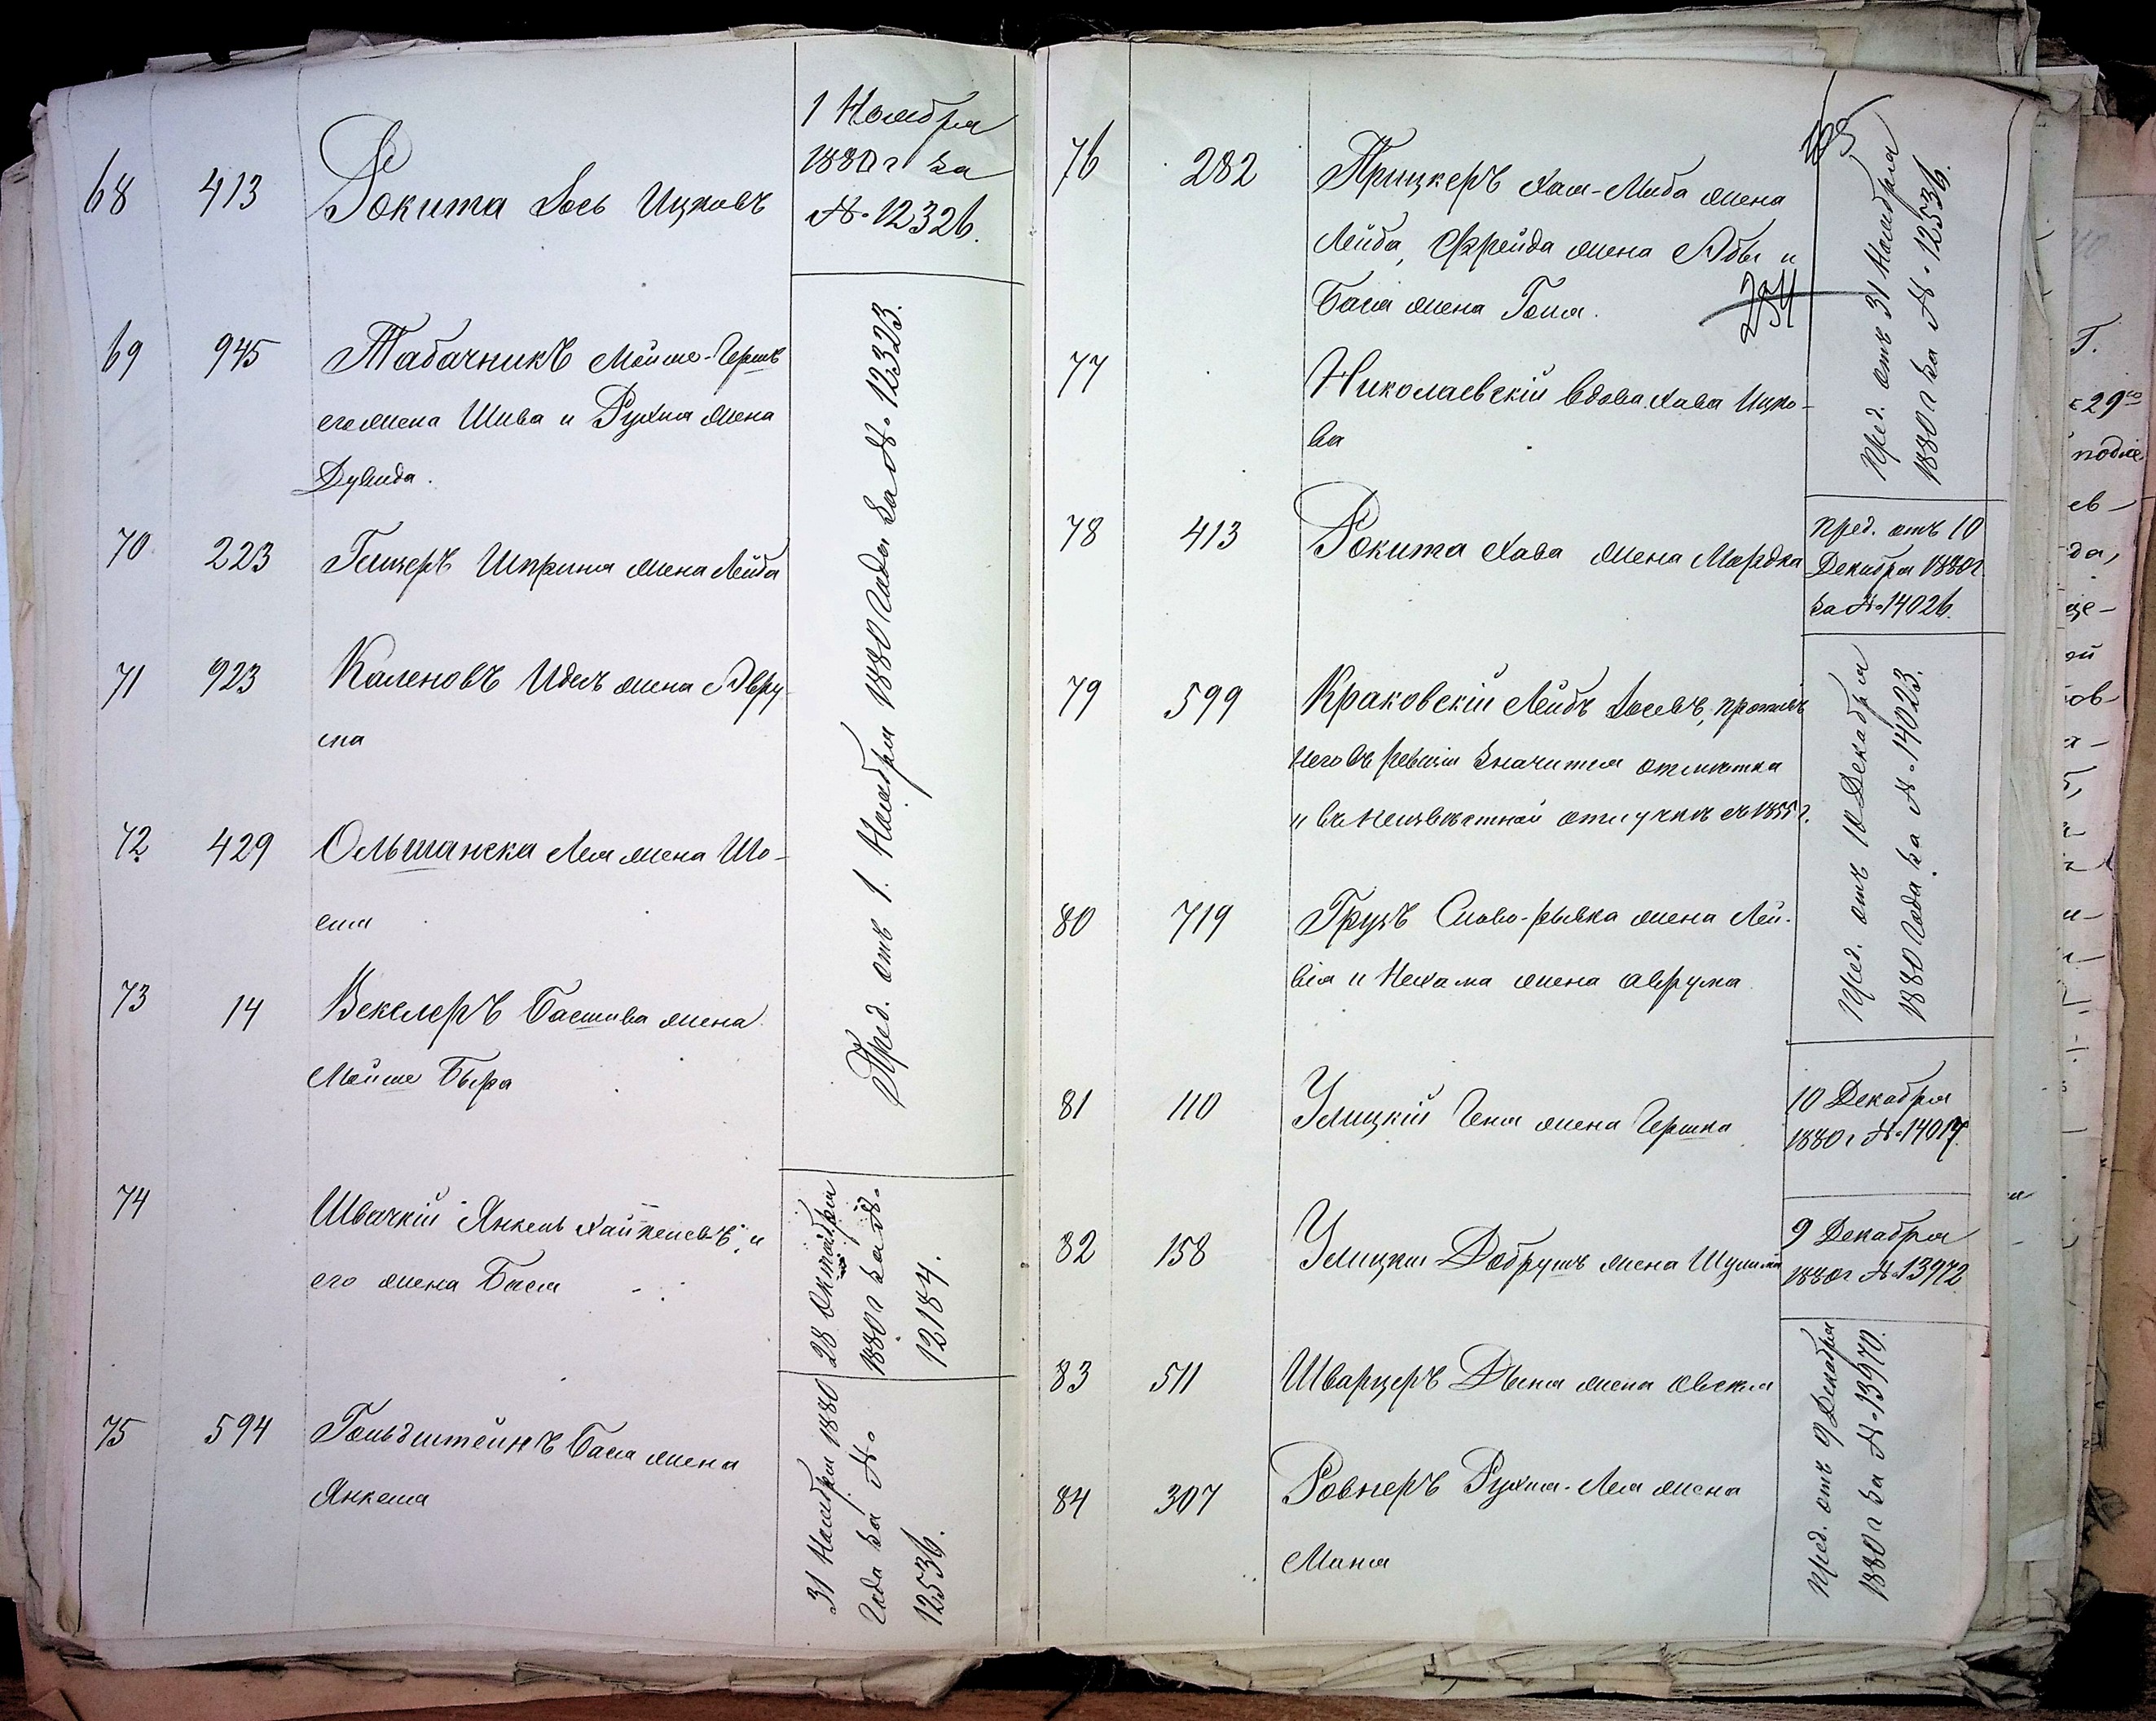 1 Ноября
1880 г за
№ 12326.
68 413 Рокита Іось Ицковъ
69 945 Табачникъ Мойше-Гершъ
его жена Шива и Рухля жена
Дувида.
70 223 Гешеръ Шпринца жена Лейба
71 923 Каленовъ Идесъ жена Авру-
ма
72 429 Ольшанска Лея жена Шо-
еля
73 14 Векслеръ Басшива жена
Мойше Бера
Пред. отъ 1. Ноября 1880 года за № 12323.
74 Швачкій Янкель Хаимовъ, и
его жена Бася
28 Октября
1880 г за №
12184.
75 594 Гольдштейнъ Бася жена
Янкеля
31 Ноября 1880
года за №
12536.
105
76 282 Прицкеръ Хая-Люба жена
Лейба, Фрейда жена Абы и
Бася жена Гоша.
254
77 Николаевскій вдова Хава Ицко-
ва
Пред. отъ 31 Ноября
1880 г за № 12536.
78 413 Рокита Хава жена Мордка
Пред. отъ 10
Декабря 1880 г
за № 14026.
79 599 Краковскій Лейбъ Іосевъ, противъ
него въ ревизіи значится отметка
и въ неизвѣстной отлучкѣ съ 1855 г.
80 719 Грузъ Слово-рывка жена Лей-
віа и Нехама жена Аврума
Пред. отъ 10 Декабря
1880 года за № 14023.
81 110 Улицкій Геня жена Гершка
10 Декабря
1880 г № 14017.
82 158 Улицкій Добрушъ жена Шулима
9 Декабря
1880 г № 13972
83 511 Шварцеръ Двына жена Овсея
84 307 Ровнеръ Рухля-Лея жена
Маня
Пред. отъ 9 Декабря
1880 г за № 13970.